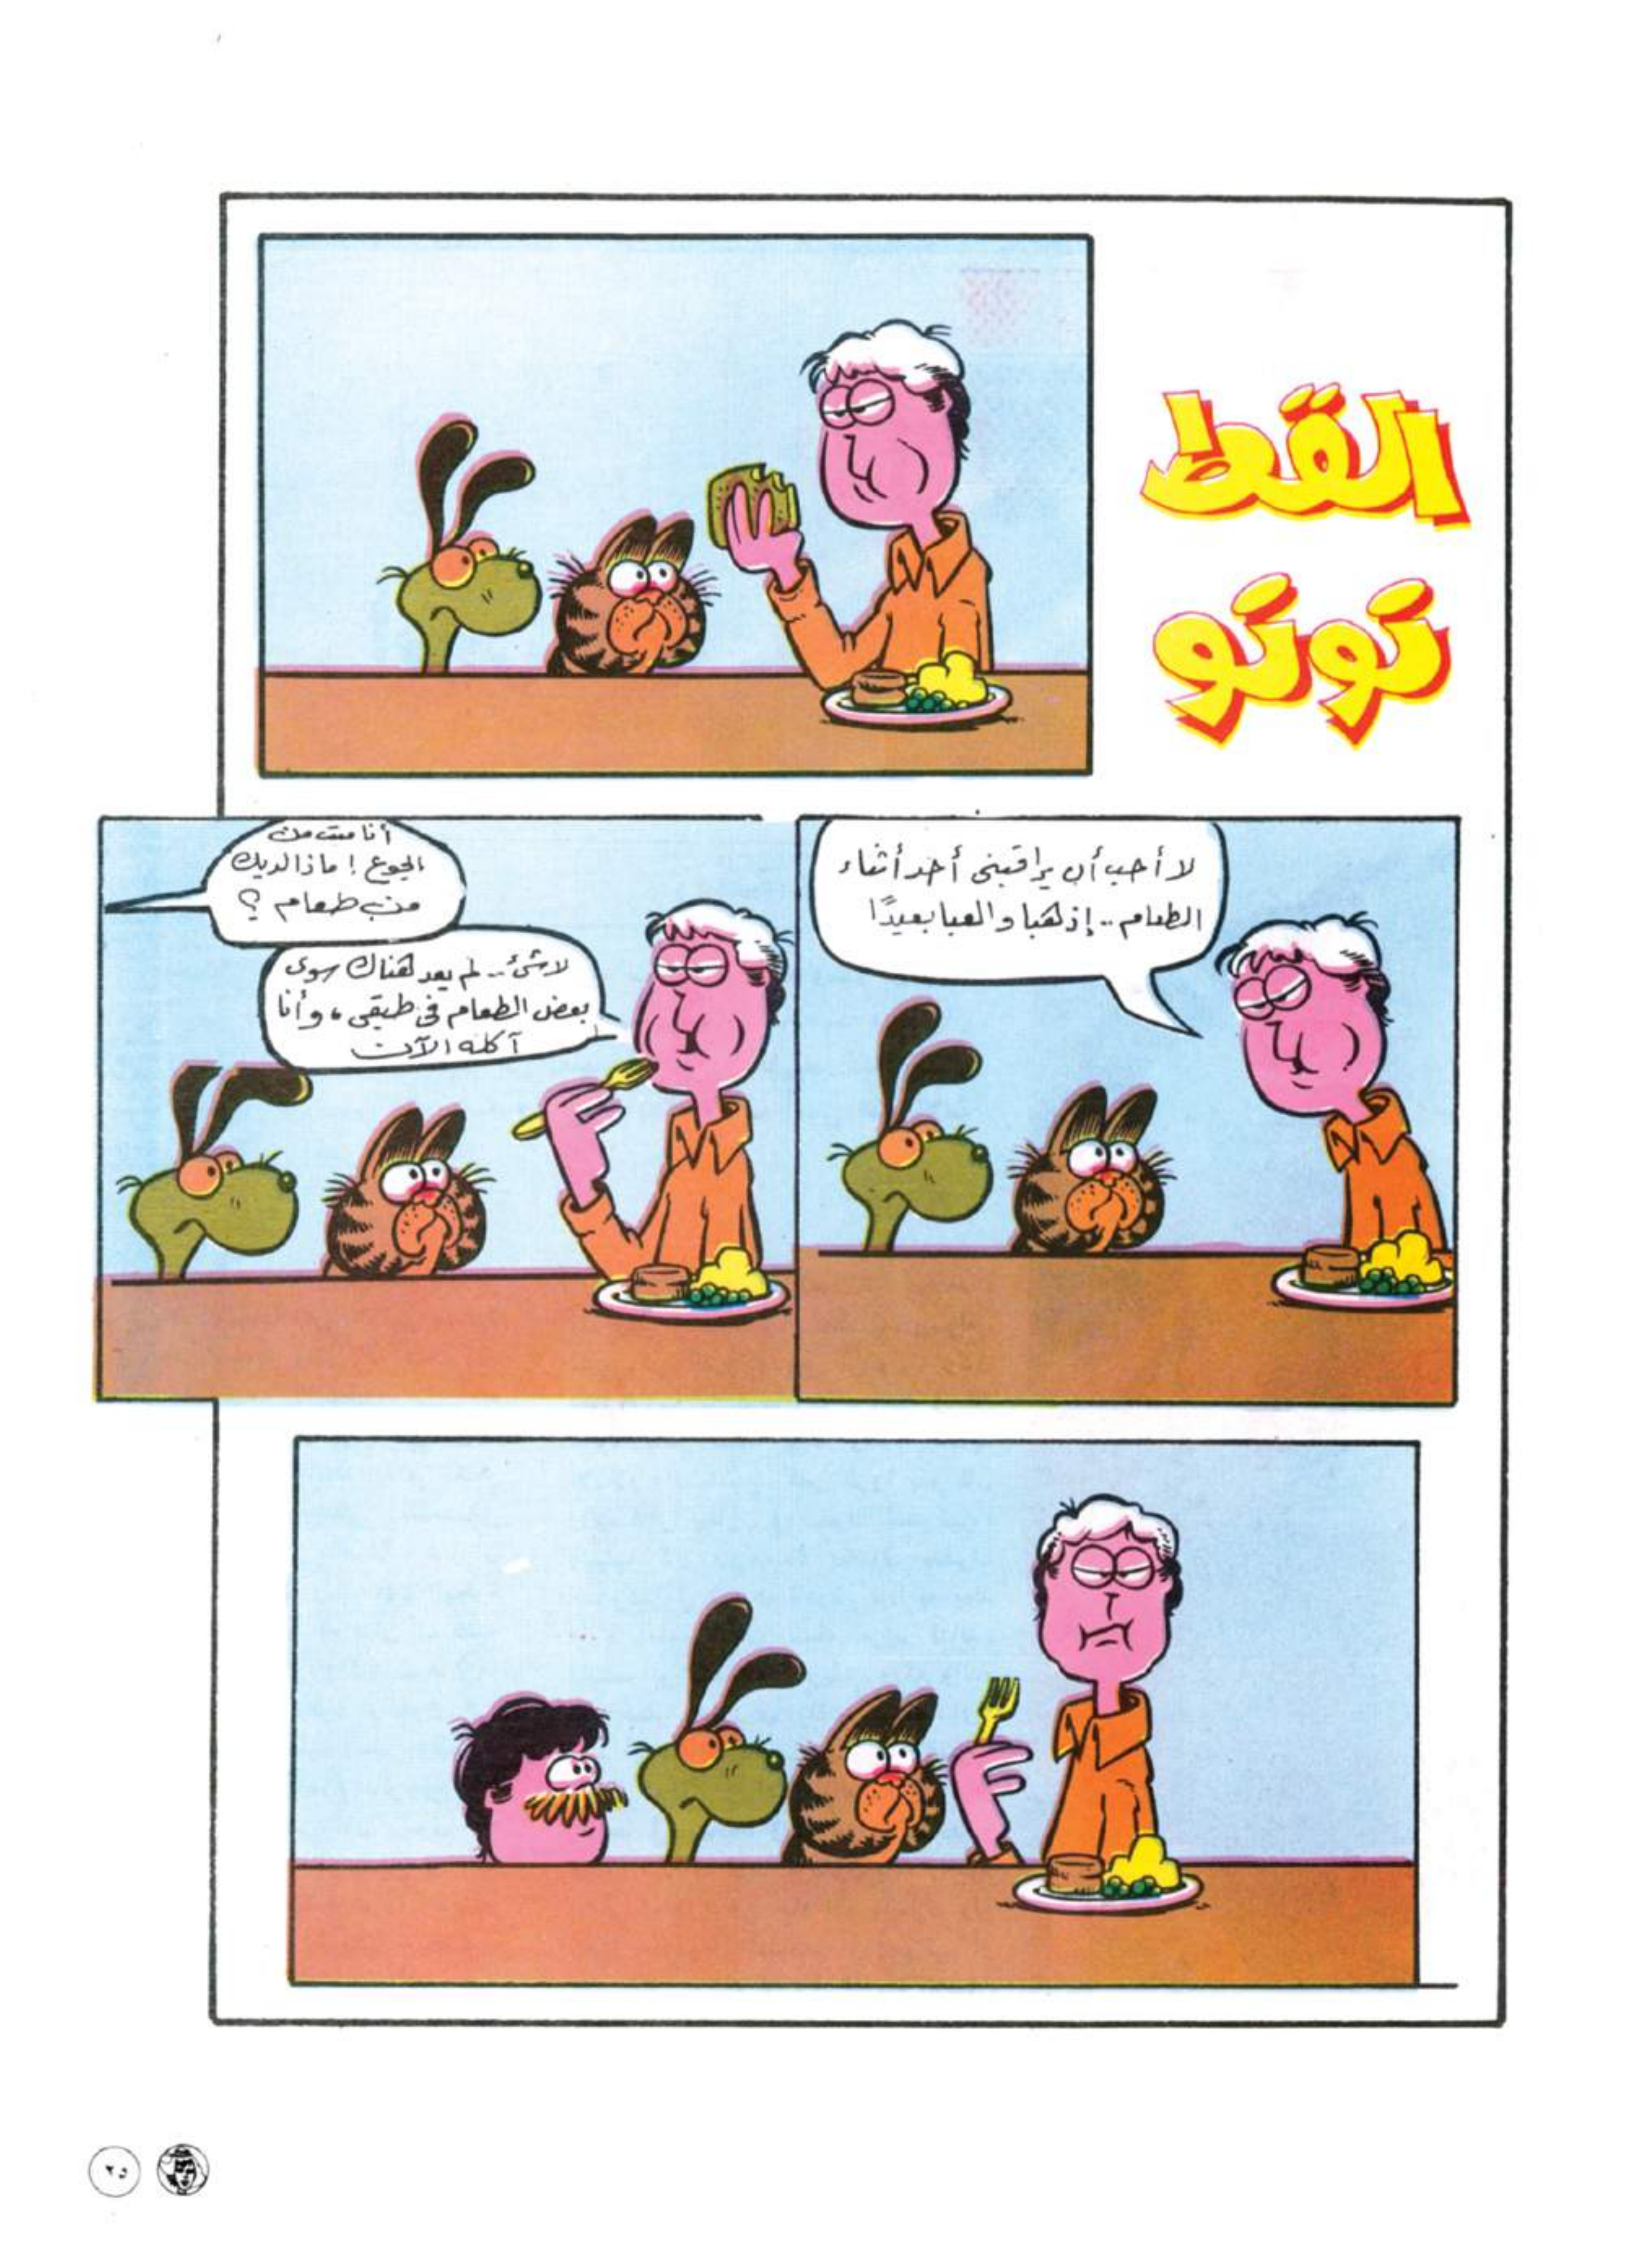 القط
توتو
لا أحب أن يراقبنى أحد أثناء
الطعام.. إذهبا والعبا بعيدًا
أنا مت من
الجوع! ماذا لديك
من طعام؟
لا شئ.. لم يعد هناك سوى
بعض الطعام فى طبقى، وأنا
آكله الآن
٢٥